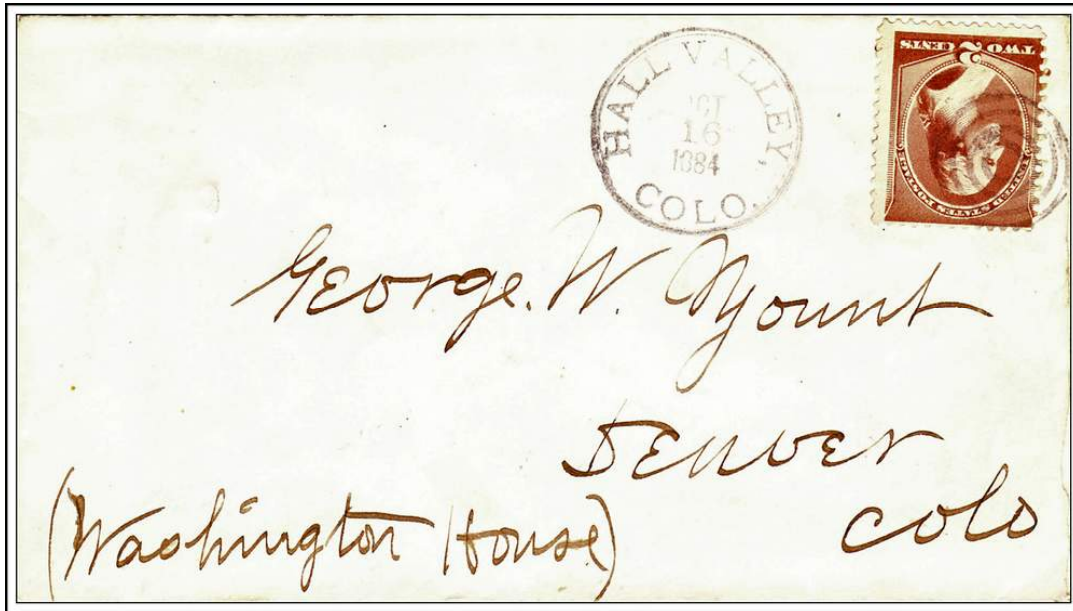 HALL VALLEY,
16
1884
COLO.
TWO 2 CENTS
UNITED STATES POSTAGE
George. W. Yount
Denver
Colo
(Washington House)